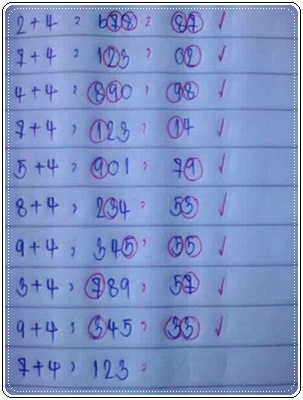 2+4 = 678 = 87 ✓
7+4 = 123 = 02 ✓
4+4 = 890 = 98 ✓
7+4 = 123 = 14 ✓
5+4 = 901 = 79 ✓
8+4 = 234 = 53 ✓
9+4 = 345 = 55 ✓
3+4 = 789 = 57 ✓
9+4 = 345 = 33 ✓
7+4 = 123 =